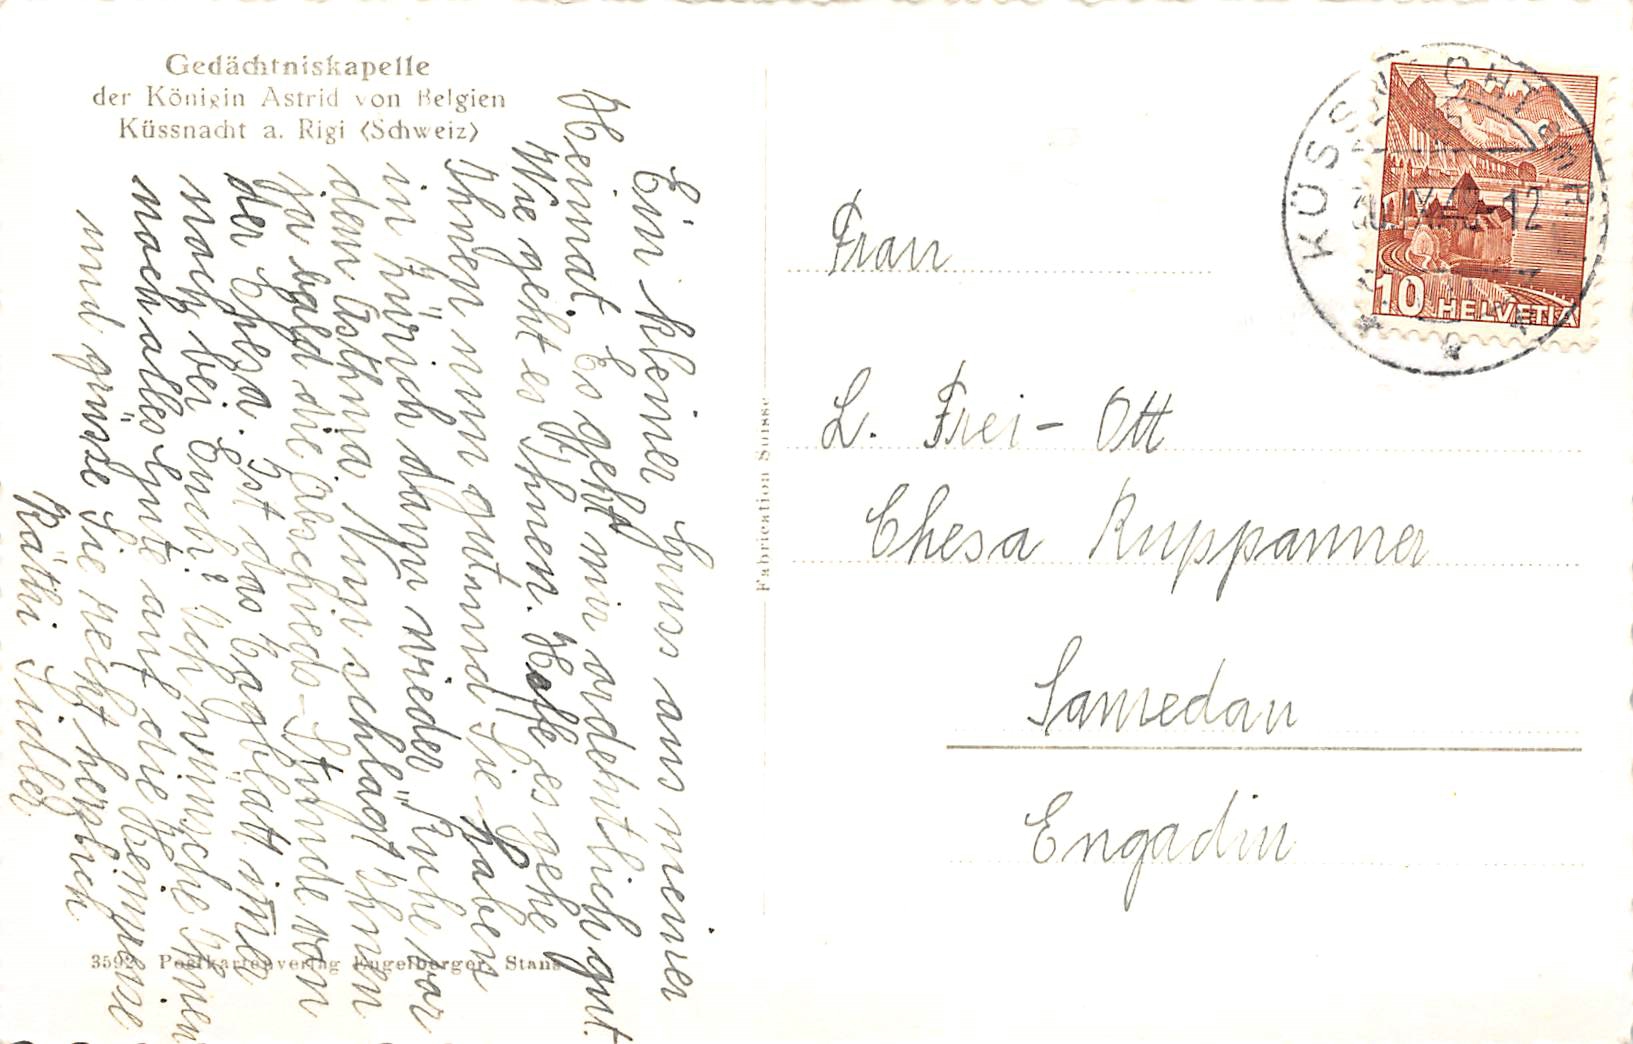 Gedächtniskapelle
der Königin Astrid von Belgien
Küssnacht a. Rigi (Schweiz)
Ein kleiner Gruss aus meiner
Heimat. Es geht mir ordentlich gut.
Wie geht es Ihnen. Hoffe es gehe
Ihnen nun gut und Sie haben
in Zürich dann wieder Ruhe vor
dem Asthma. Nun schlägt Ihnen
ja bald die Abschieds-Stunde von
der Chesa. Ist das Eggblatt immer
noch bei Euch? Ich wünsche Ihnen
noch alles Gute auf die Heimreise
und grüsse Sie recht herzlich
Käthi Sidler
3592 Postkartenverlag Engelberger, Stans
Fabrication Suisse
KÜSSNACHT am RIGI
IX.4 -12
10 HELVETIA
Frau
L. Frei-Ott
Chesa Ruppanner
Samedan
Engadin